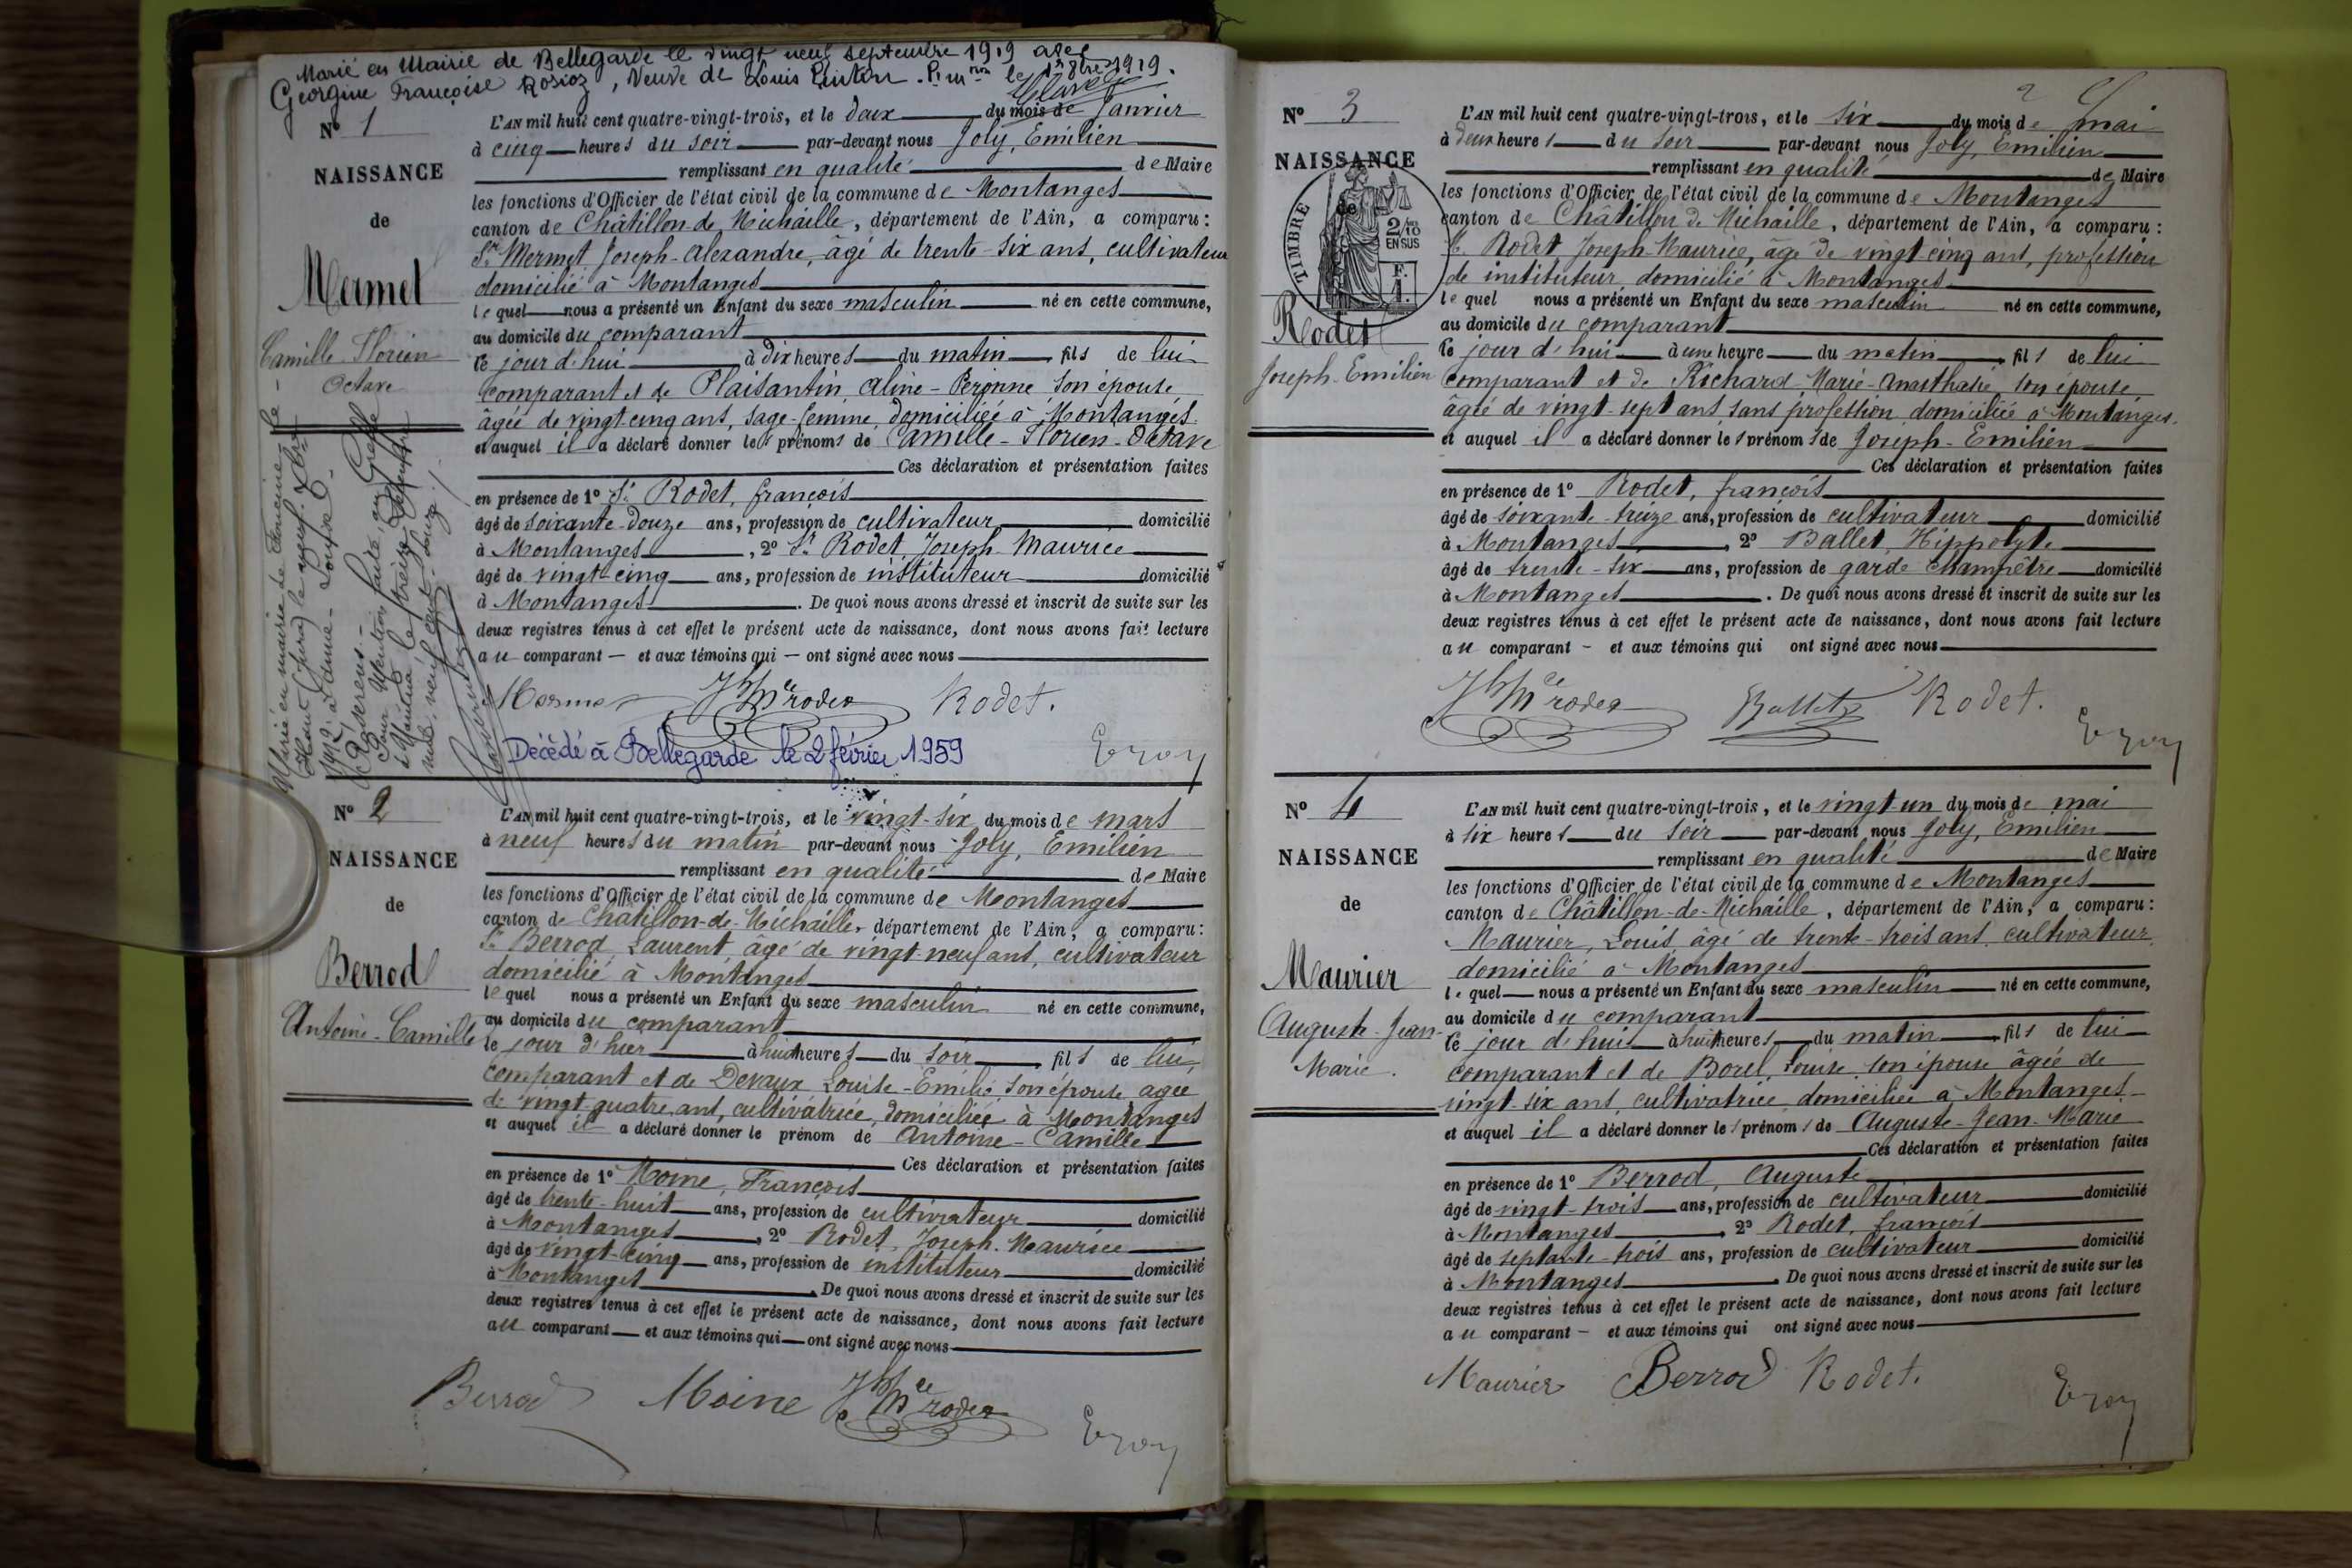 Marié en Mairie de Bellegarde le vingt neuf septembre 1919 avec
Georgine Françoise Rosioz, veuve de Louis
le 1919.
N° 1
NAISSANCE
de
Mermet
Camille Florien
Octave
L'AN mil huit cent quatre-vingt-trois, et le deux du mois de Janvier
à cinq heures du soir par-devant nous Joly, Emilien
remplissant en qualité de Maire
les fonctions d'Officier de l'état civil de la commune de Montanges
canton de Châtillon de Michaille, département de l'Ain, a comparu :
Sr Mermet Joseph-Alexandre, âgé de trente-six ans, cultivateur
domicilié à Montanges
lequel nous a présenté un Enfant du sexe masculin né en cette commune,
au domicile du comparant
le jour d'hui à dix heures du matin, fils de lui
comparant et de Plaisantin Aline-Peronne son épouse
âgée de vingt cinq ans, sage-femme, domiciliée à Montanges.
et auquel il a déclaré donner les prénoms de Camille-Florien-Octave
Ces déclaration et présentation faites
en présence de 1° Sr Rodet, françois
âgé de soixante-douze ans, profession de cultivateur domicilié
à Montanges, 2° Sr Rodet, Joseph Maurice
âgé de vingt-cinq ans, profession de instituteur domicilié
à Montanges. De quoi nous avons dressé et inscrit de suite sur les
deux registres tenus à cet effet le présent acte de naissance, dont nous avons fait lecture
au comparant — et aux témoins qui — ont signé avec nous
Mermet Jh Mce rodet Rodet.
Décédé à Bellegarde le 2 février 1959
E Joly
Marié en mairie de
le neuf
1912 à Jeanne-Louise
Pour Mention faite au Greffe
à Nantua le treize
mil neuf cent douze.
N° 2
NAISSANCE
de
Berrod
Antoine-Camille
L'AN mil huit cent quatre-vingt-trois, et le vingt-six du mois de mars
à neuf heures du matin par-devant nous Joly, Emilien
remplissant en qualité de Maire
les fonctions d'Officier de l'état civil de la commune de Montanges
canton de Châtillon-de-Michaille, département de l'Ain, a comparu :
Sr Berrod Laurent, âgé de vingt-neuf ans, cultivateur
domicilié à Montanges
lequel nous a présenté un Enfant du sexe masculin né en cette commune,
au domicile du comparant
le jour d'hier à huit heures du soir, fils de lui
comparant et de Devaux Louise-Emilie, son épouse, agée
de vingt quatre ans, cultivatrice, domiciliée à Montanges
et auquel il a déclaré donner le prénom de Antoine-Camille
Ces déclaration et présentation faites
en présence de 1° Moine, François
âgé de trente-huit ans, profession de cultivateur domicilié
à Montanges, 2° Rodet, Joseph-Maurice
âgé de vingt-cinq ans, profession de instituteur domicilié
à Montanges. De quoi nous avons dressé et inscrit de suite sur les
deux registres tenus à cet effet le présent acte de naissance, dont nous avons fait lecture
au comparant — et aux témoins qui — ont signé avec nous
Berrod Moine Jh Mce rodet E Joly
2
N° 3
NAISSANCE
de
TIMBRE
2/10
EN SUS
F.
1.
Rodet
Joseph-Emilien
L'AN mil huit cent quatre-vingt-trois, et le six du mois de mai
à deux heures du soir par-devant nous Joly, Emilien
remplissant en qualité de Maire
les fonctions d'Officier de l'état civil de la commune de Montanges
canton de Châtillon de Michaille, département de l'Ain, a comparu :
Sr Rodet Joseph-Maurice, âgé de vingt-cinq ans, profession
de instituteur, domicilié à Montanges
lequel nous a présenté un Enfant du sexe masculin né en cette commune,
au domicile du comparant
le jour d'hui à une heure du matin, fils de lui
comparant et de Richard-Marie-Anasthasie, son épouse
âgée de vingt-sept ans, sans profession, domiciliée à Montanges.
et auquel il a déclaré donner les prénoms de Joseph-Emilien
Ces déclaration et présentation faites
en présence de 1° Rodet, françois
âgé de soixante-treize ans, profession de cultivateur domicilié
à Montanges, 2° Ballet, Hippolyte
âgé de trente-six ans, profession de garde champêtre domicilié
à Montanges. De quoi nous avons dressé et inscrit de suite sur les
deux registres tenus à cet effet le présent acte de naissance, dont nous avons fait lecture
au comparant — et aux témoins qui ont signé avec nous
Jh Mce rodet Ballet Rodet.
E Joly
N° 4
NAISSANCE
de
Maurier
Auguste-Jean-
Marie.
L'AN mil huit cent quatre-vingt-trois, et le vingt-un du mois de mai
à six heures du soir par-devant nous Joly, Emilien
remplissant en qualité de Maire
les fonctions d'Officier de l'état civil de la commune de Montanges
canton de Châtillon-de-Michaille, département de l'Ain, a comparu :
Maurier, Louis, âgé de trente-trois ans, cultivateur,
domicilié à Montanges
lequel nous a présenté un Enfant du sexe masculin né en cette commune,
au domicile du comparant
le jour d'hui à huit heures du matin, fils de lui
comparant et de Borel, Louise, son épouse âgée de
vingt-six ans, cultivatrice, domiciliée à Montanges
et auquel il a déclaré donner les prénoms de Auguste-Jean-Marie
Ces déclaration et présentation faites
en présence de 1° Berrod, Auguste
âgé de vingt-trois ans, profession de cultivateur domicilié
à Montanges, 2° Rodet, françois
âgé de septante-trois ans, profession de cultivateur domicilié
à Montanges. De quoi nous avons dressé et inscrit de suite sur les
deux registres tenus à cet effet le présent acte de naissance, dont nous avons fait lecture
au comparant — et aux témoins qui ont signé avec nous
Maurier Berrod Rodet. E Joly